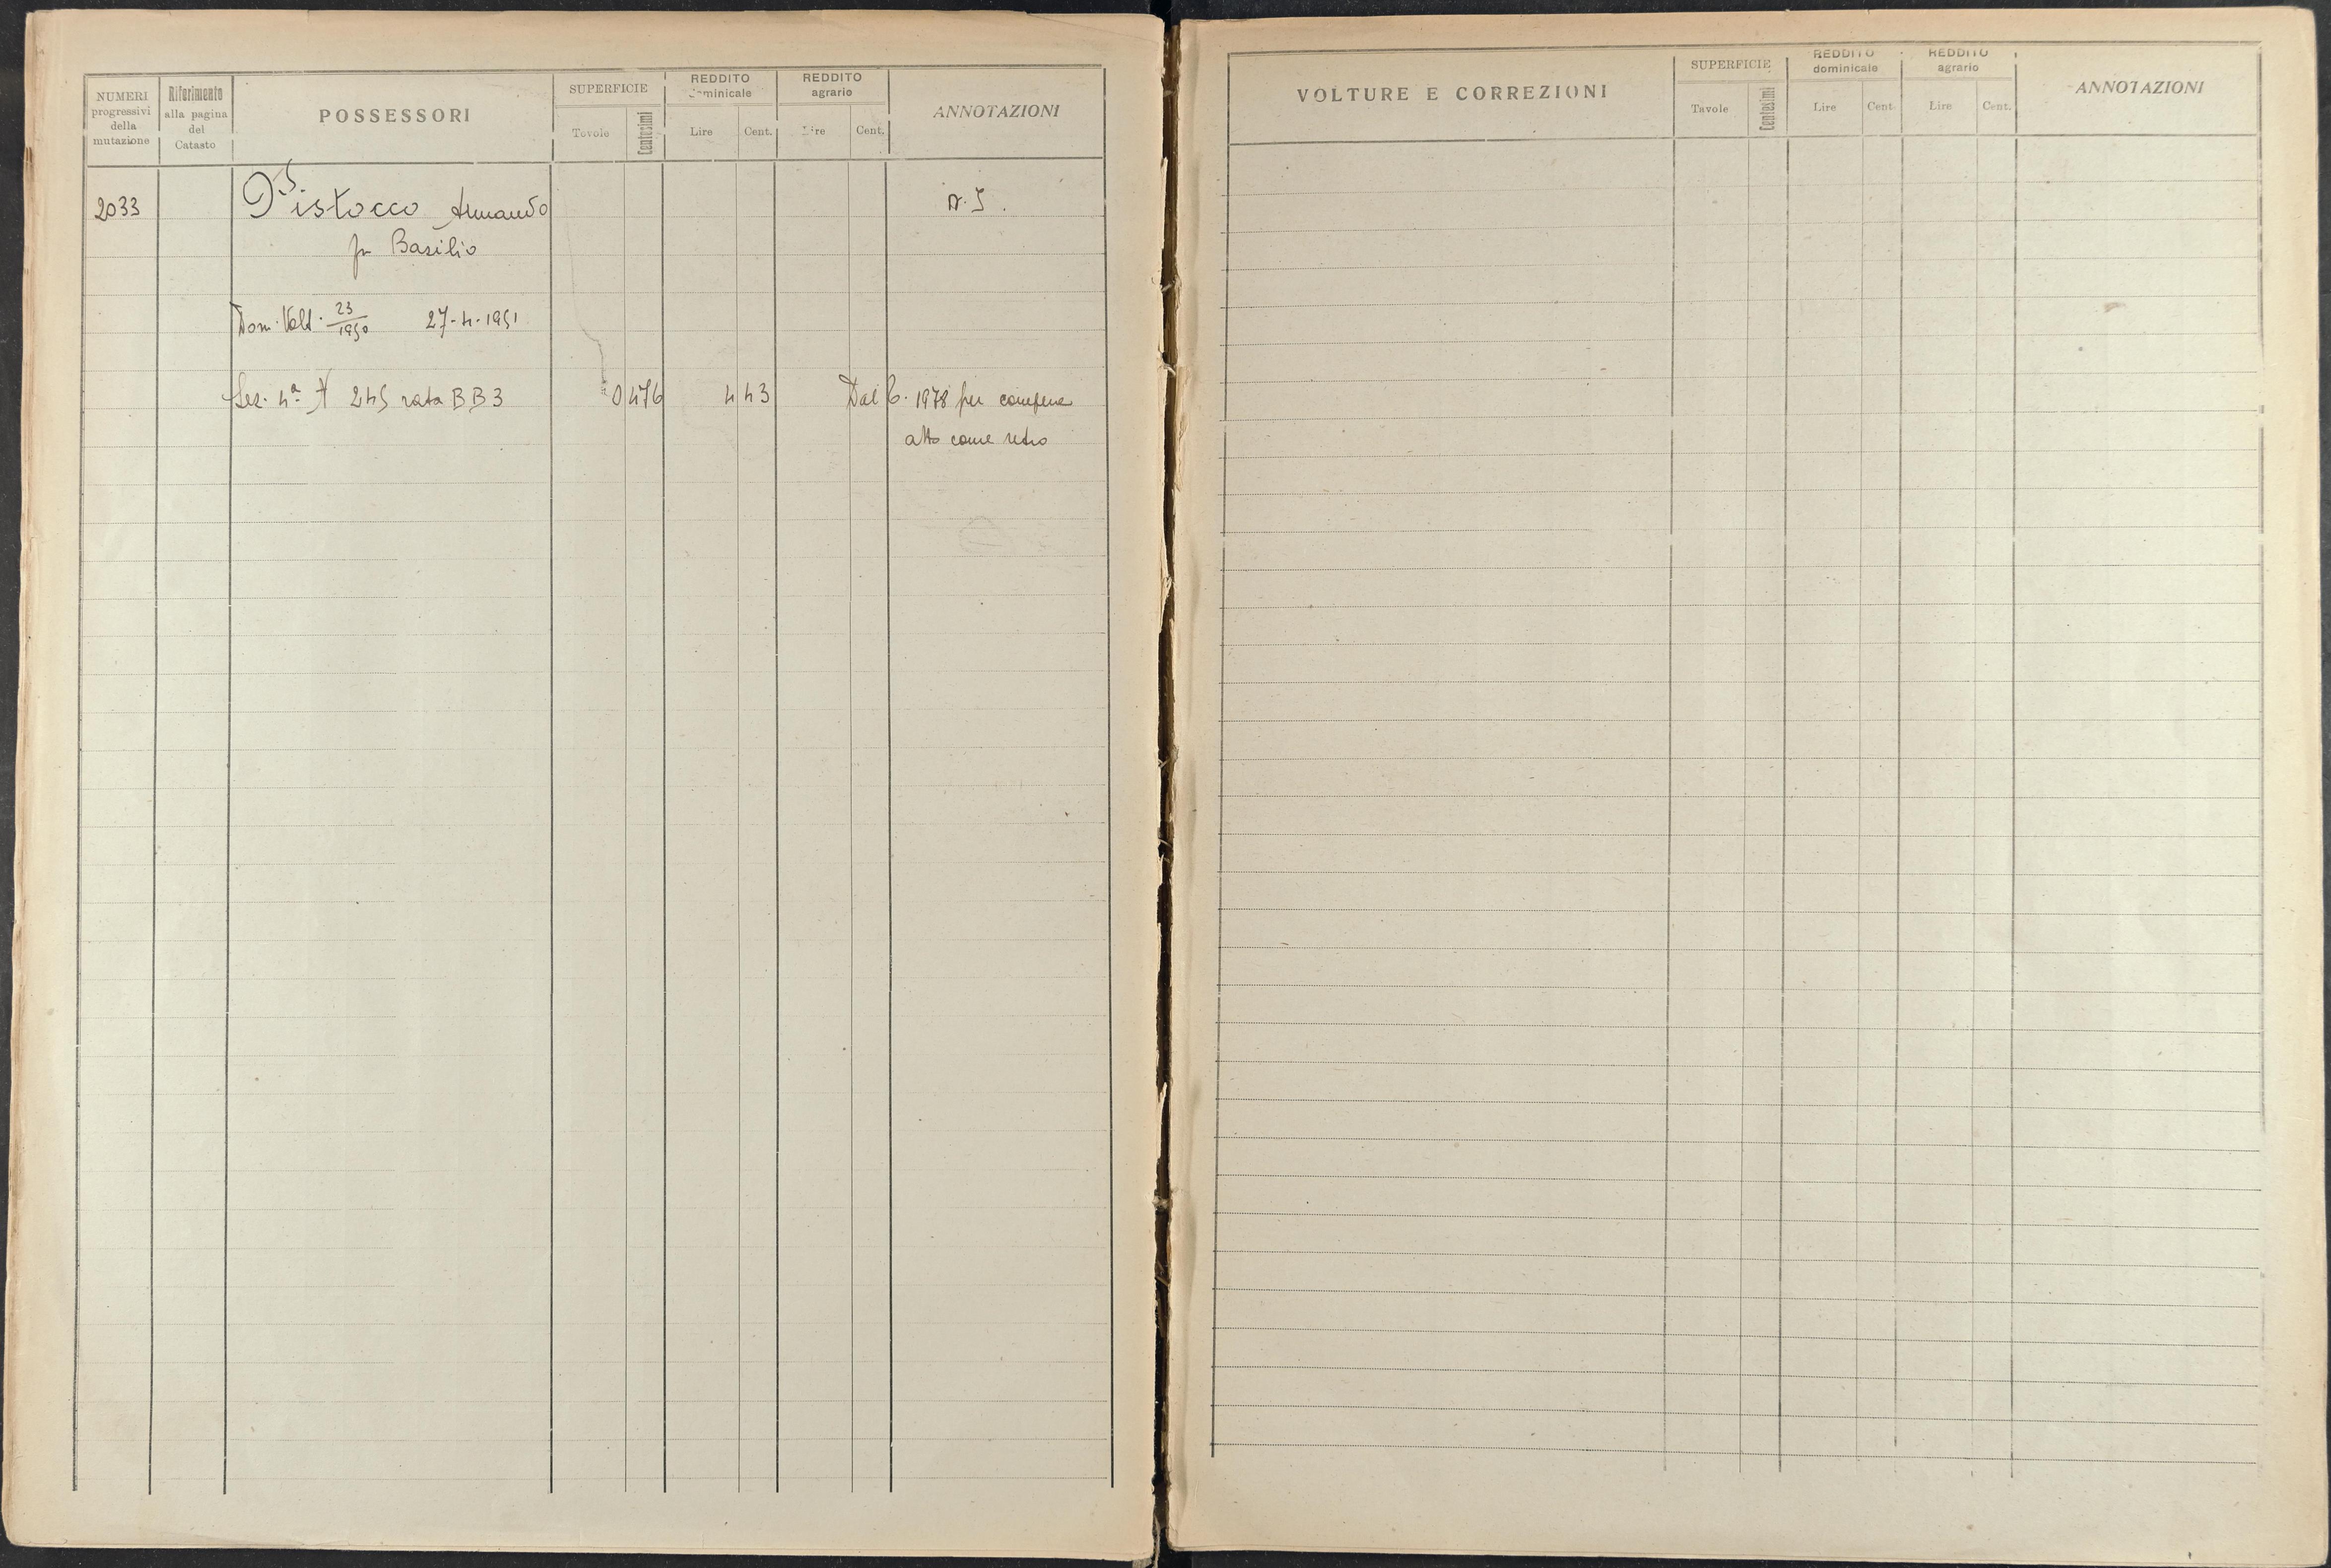 NUMERI progressivi della mutazione
Riferimento alla pagina del Catasto
POSSESSORI
SUPERFICIE
Tavole
Centesimi
REDDITO dominicale
Lire
Cent.
REDDITO agrario
Lire
Cent.
ANNOTAZIONI
2033 Pistocco Armando N. 5.
fu Basilio
Dom. Volt. 23/1950 27-4-1951
Sez. 4ª A 245 rata BB3 0 476 4 43 Dal C. 1978 per
atto come retro
VOLTURE E CORREZIONI
SUPERFICIE
Tavole
Centesimi
REDDITO dominicale
Lire
Cent.
REDDITO agrario
Lire
Cent.
ANNOTAZIONI